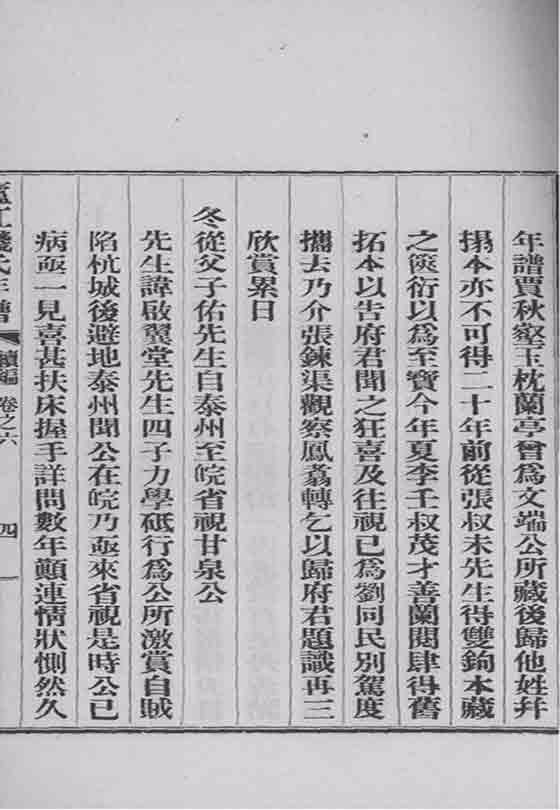 年譜賈秋壑玉枕蘭亭曾爲文端公所藏後歸他姓幷
搨本亦不可得二十年前從張叔未先生得雙鉤本藏
之篋衍以爲至寶今年夏李壬叔茂才善蘭閱肆得舊
拓本以告府君聞之狂喜及往視已爲劉同民別駕度
攜去乃介張鍊渠觀察鳳翥轉乞以歸府君題識再三
欣賞累日
冬從父子佑先生自泰州至皖省視甘泉公
先生諱啟翼堂先生四子力學砥行爲公所激賞自賊
陷杭城後避地泰州聞公在皖乃亟來省視是時公已
病亟一見喜甚扶床握手詳問數年顛連情狀惻然久
廬江錢氏年譜 續編 卷之六 四